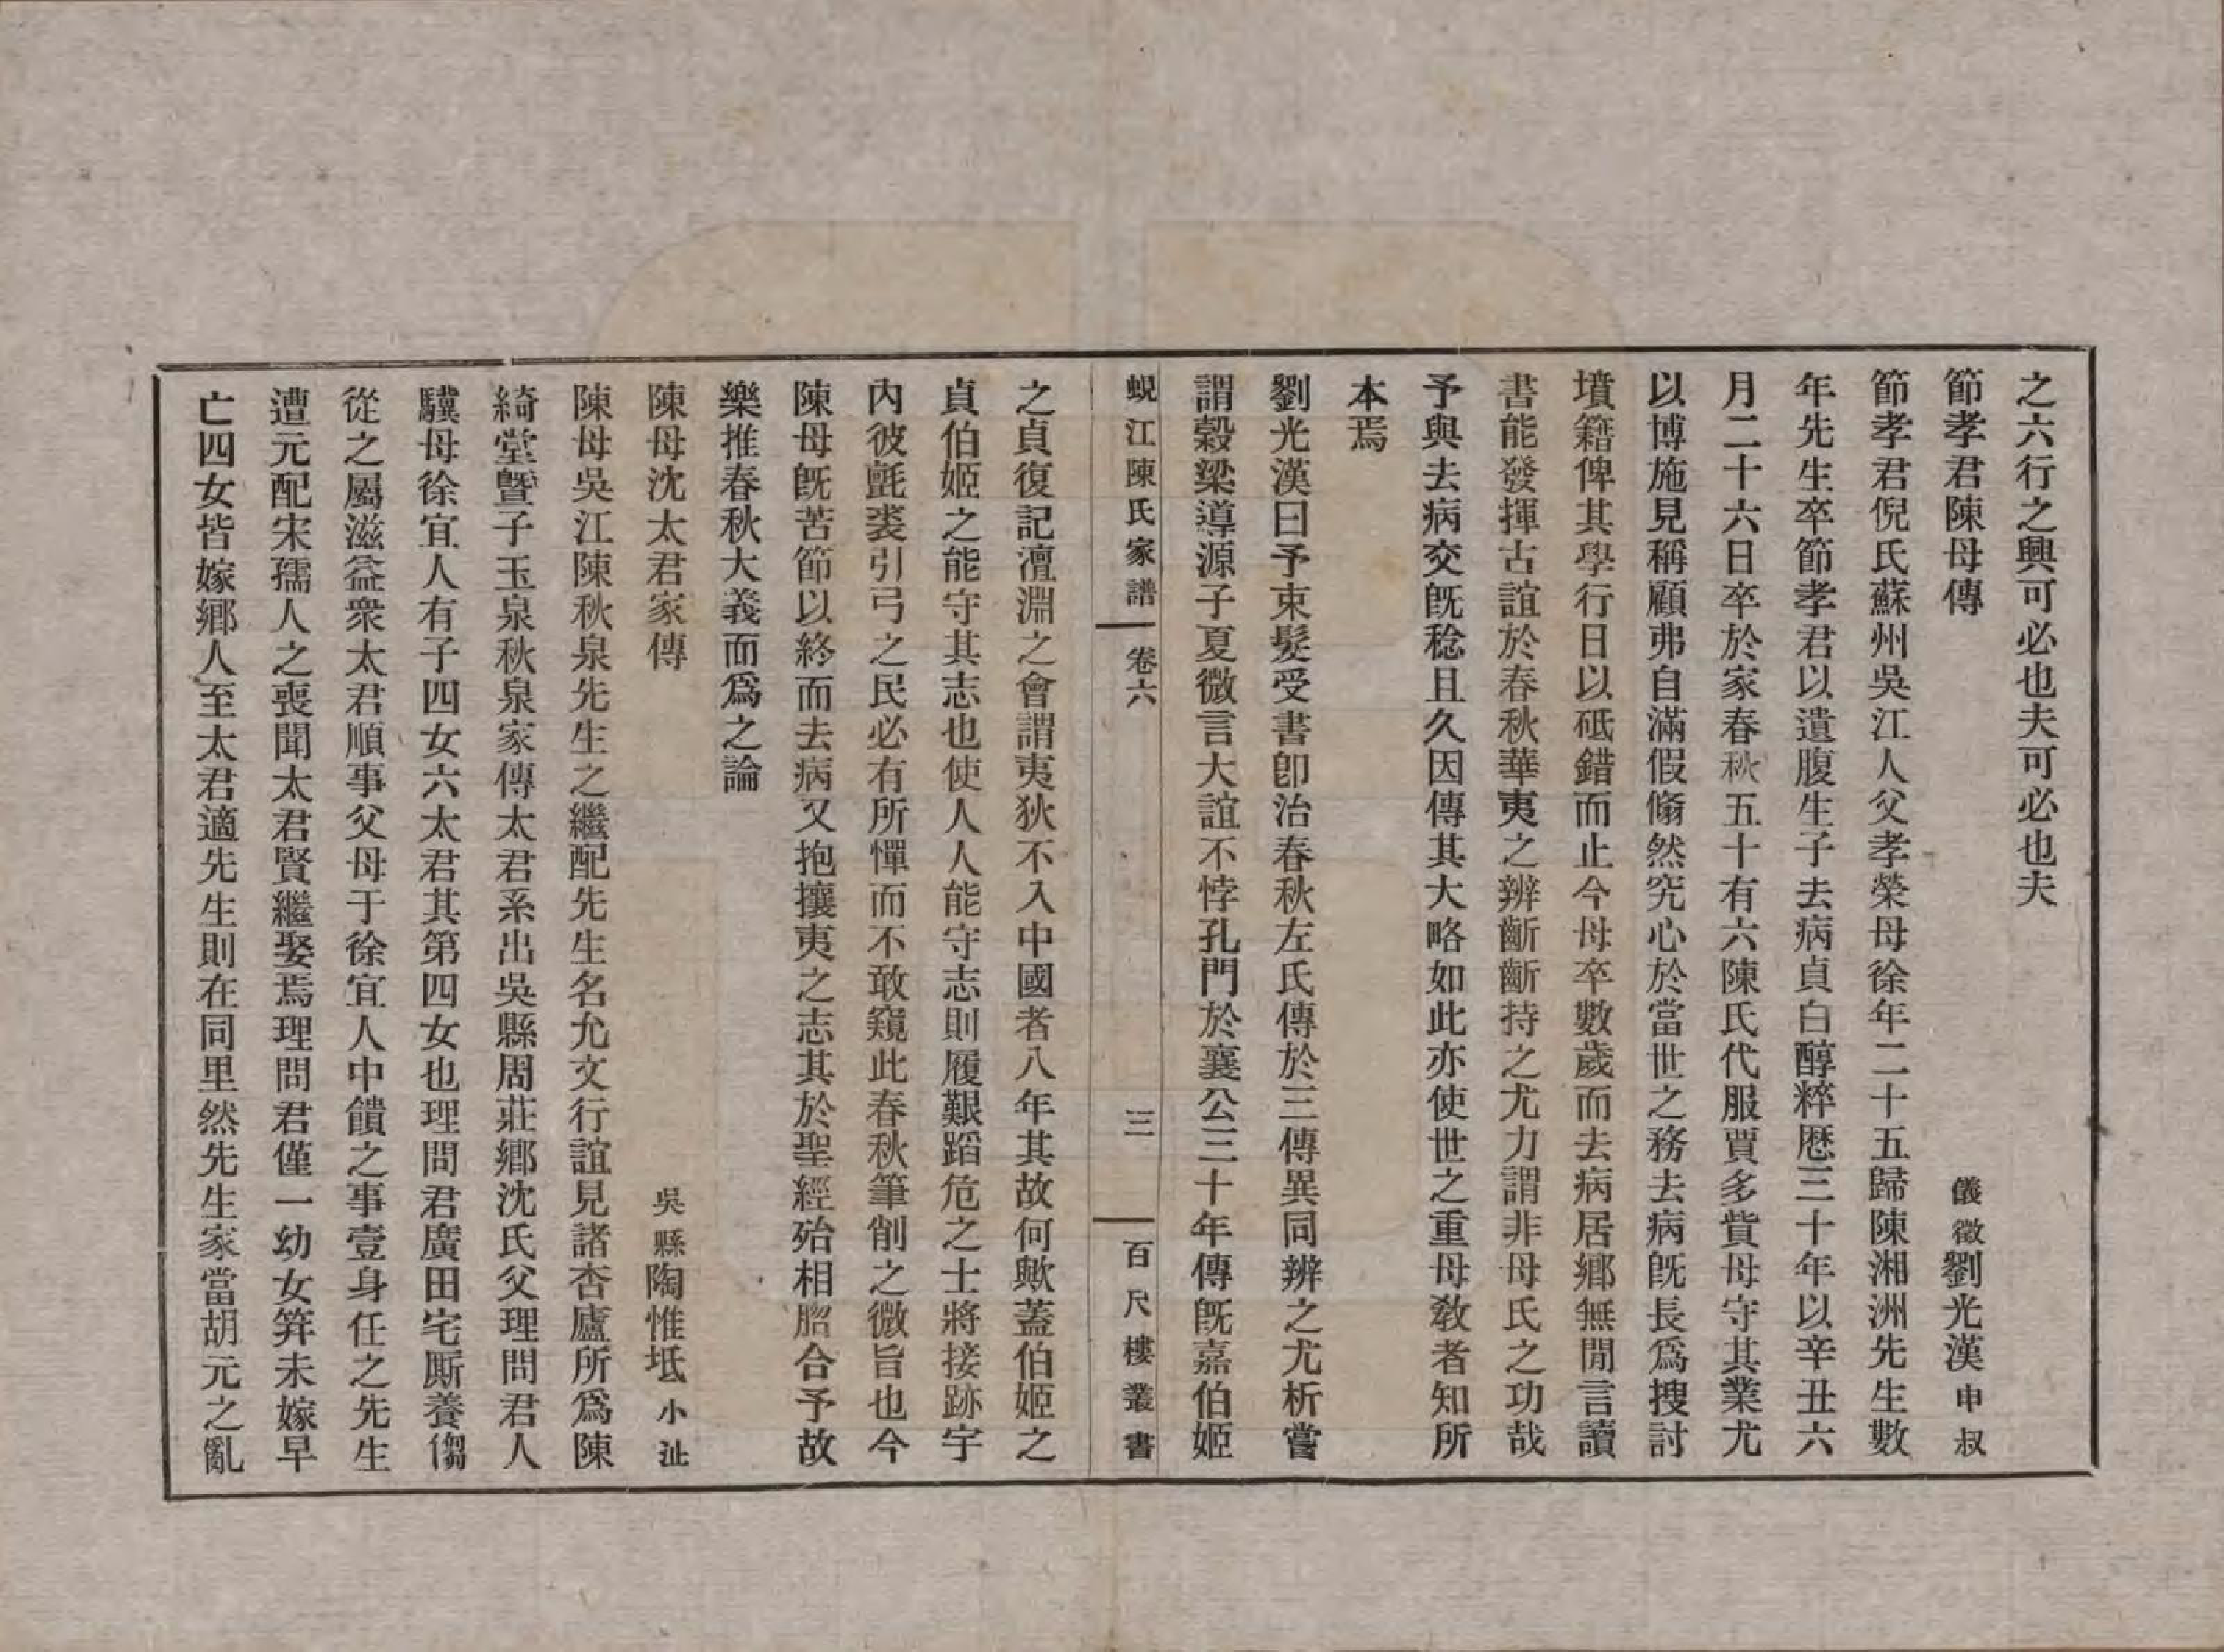 之六行之興可必也夫可必也夫
節孝君陳母傳 儀徵劉光漢申叔
節孝君倪氏蘇州吳江人父孝榮母徐年二十五歸陳湘洲先生數
年先生卒節孝君以遺腹生子去病貞白醇粹歷三十年以辛丑六
月二十六日卒於家春秋五十有六陳氏代服賈多貲母守其業尤
以博施見稱顧弗自滿假翛然究心於當世之務去病旣長爲搜討
墳籍俾其學行日以砥錯而止今母卒數歲而去病居鄕無閒言讀
書能發揮古誼於春秋華夷之辨齗齗持之尤力謂非母氏之功哉
予與去病交旣稔且久因傳其大略如此亦使世之重母敎者知所
本焉
劉光漢曰予束髮受書卽治春秋左氏傳於三傳異同辨之尤析嘗
謂穀梁導源子夏微言大誼不悖孔門於襄公三十年傳旣嘉伯姬
蜆江陳氏家譜 卷六 三 百尺樓叢書
之貞復記澶淵之會謂夷狄不入中國者八年其故何歟蓋伯姬之
貞伯姬之能守其志也使人人能守志則履艱蹈危之士將接跡宇
內彼氈裘引弓之民必有所憚而不敢窺此春秋筆削之微旨也今
陳母旣苦節以終而去病又抱攘夷之志其於聖經殆相脗合予故
樂推春秋大義而爲之論
陳母沈太君家傳 吳縣陶惟坻小沚
陳母吳江陳秋泉先生之繼配先生名允文行誼見諸杏廬所爲陳
綺堂曁子玉泉秋泉家傳太君系出吳縣周莊鄕沈氏父理問君人
驥母徐宜人有子四女六太君其第四女也理問君廣田宅厮養傭
從之屬滋益衆太君順事父母于徐宜人中饋之事壹身任之先生
遭元配宋孺人之喪聞太君賢繼娶焉理問君僅一幼女笄未嫁早
亡四女皆嫁鄕人至太君適先生則在同里然先生家當胡元之亂